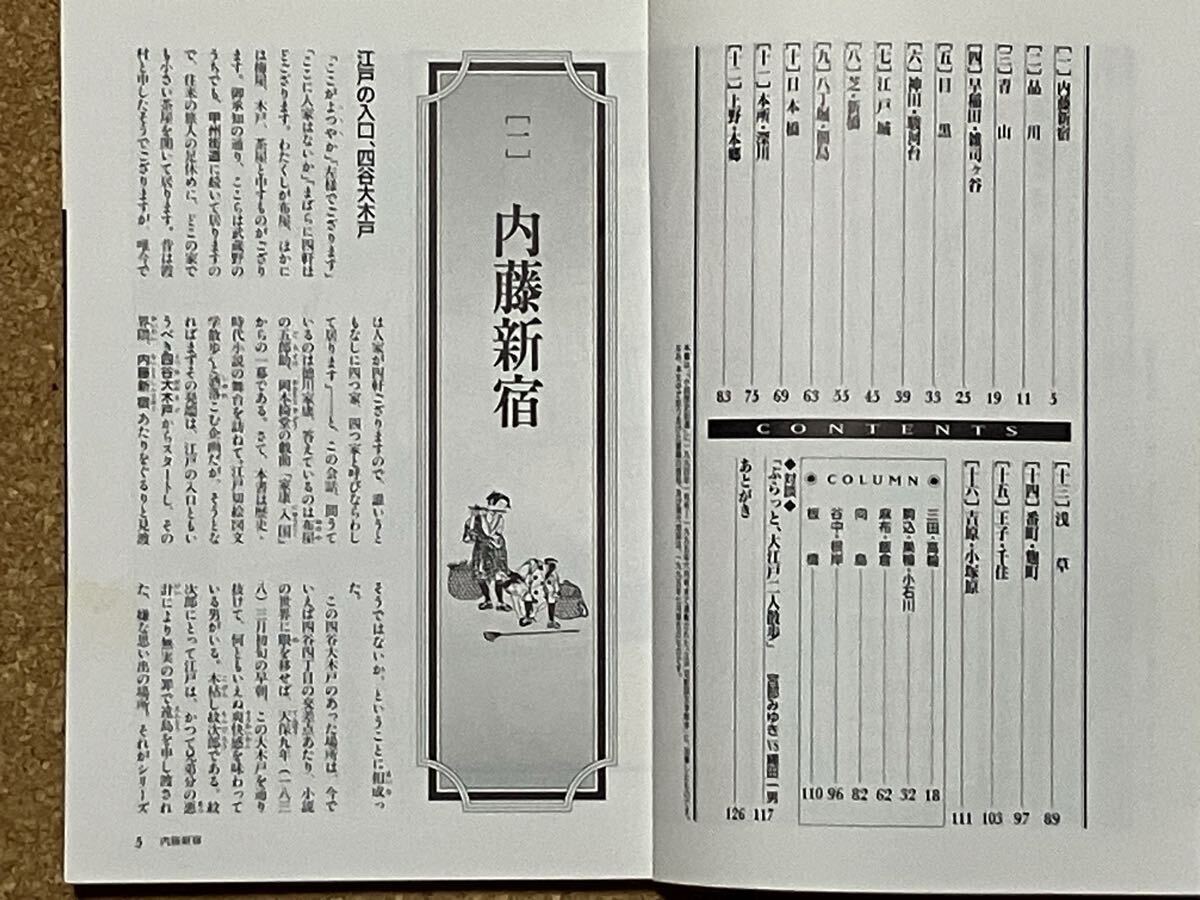 [一]内藤新宿 5
[二]品川 11
[三]青山 19
[四]早稲田・雑司ヶ谷 25
[五]目黒 33
[六]神田・駿河台 39
[七]江戸城 45
[八]芝・新橋 55
[九]八丁堀・佃島 63
[十]日本橋 69
[十一]本所・深川 75
[十二]上野・本郷 83
CONTENTS
[十三]浅草 89
[十四]番町・麴町 97
[十五]王子・千住 103
[十六]吉原・小塚原 111
◉COLUMN◉
三田・高輪 18
駒込・巣鴨・小石川 32
麻布・飯倉 62
向島 82
谷中・根岸 96
板橋 110
◆対談◆
「ぶらっと、大江戸二人散歩」 宮部みゆきVS縄田一男 117
あとがき 126
[一]
内藤新宿
江戸の入口、四谷大木戸
「ここがよつやか」「左様でござります」
「ここに人家はないか」「まばらに四軒は
どござります。わたくしが布屋、ほかに
は梅屋、木戸、茶屋と申すものがござり
ます。御承知の通り、ここらは武蔵野の
うちでも、甲州街道に続いて居りますの
で、往来の旅人の足休めに、どこの家で
も小さい茶屋を開いて居ります。昔は渡
村と申したそうでござりますが、唯今で
は人家が四軒ござりますので、誰いうと
もなしに四つ家、四つ家と呼びならわし
て居ります」――と、この会話、問うて
いるのは徳川家康、答えているのは布屋
の五郎助、岡本綺堂の戯曲「家康入国」
からの一幕である。さて、本書は歴史・
時代小説の舞台を訪ねて〝江戸切絵図文
学散歩〟と洒落こむ企画だが、そうとな
ればまずその発端は、江戸の入口ともい
うべき四谷大木戸からスタートし、その
界隈、内藤新宿あたりをぐるりと見渡
そうではないか、ということに相成っ
た。
この四谷大木戸のあった場所は、今で
いえば四谷四丁目の交差点あたり、小説
の世界に眼を移せば、天保九年(一八三
八)三月初旬の早朝、この大木戸を通り
抜けて、何ともいえぬ爽快感を味わって
いる男がいる。木枯し紋次郎である。紋
次郎にとって江戸は、かつて兄弟分の悪
計により無実の罪で遠島を申し渡され
た、嫌な思い出の場所。それがシリーズ
5 内藤新宿